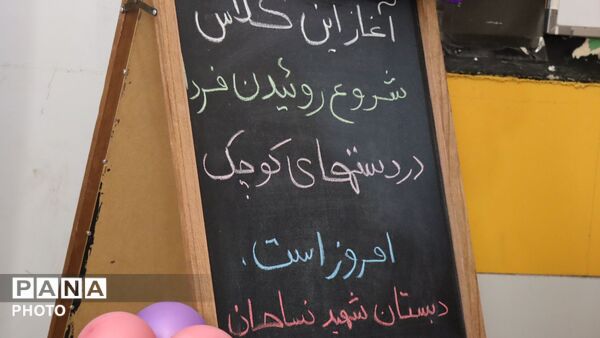 آغاز این کلاس
شروع روئیدن فرد
در دستهای کوچک
امروز است.
دبستان شهید نساجان
PANA
PHOTO